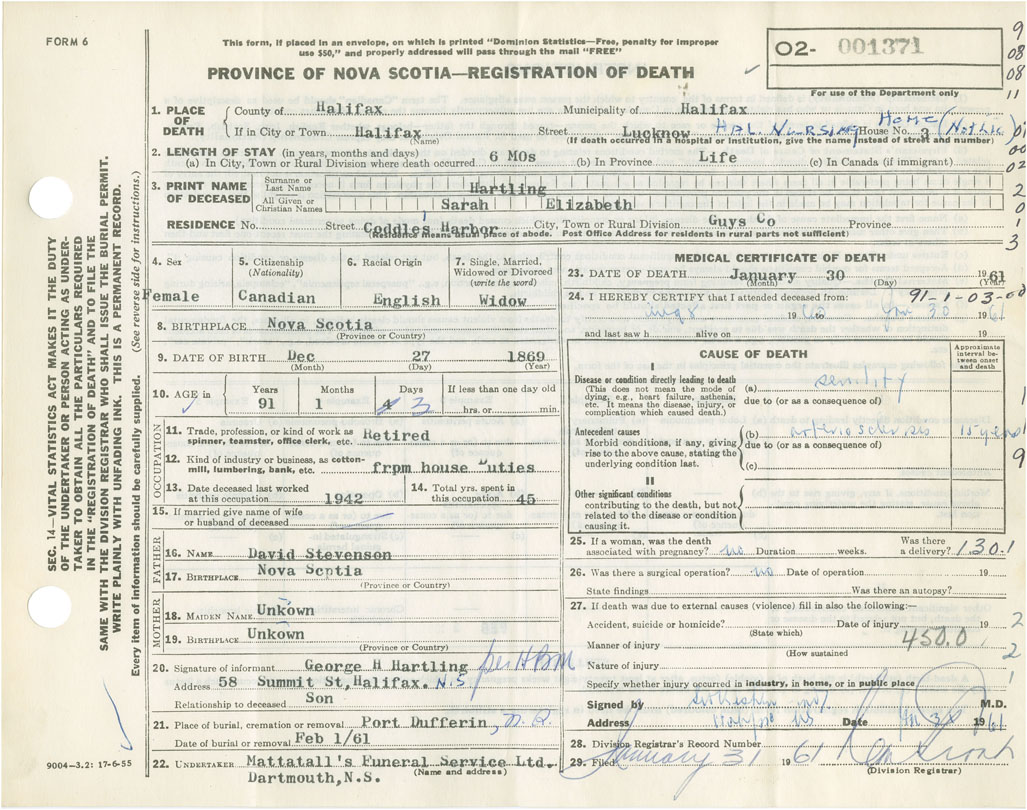 FORM 6
This form, if placed in an envelope, on which is printed "Dominion Statistics—Free, penalty for improper
use $50," and properly addressed will pass through the mail "FREE"
PROVINCE OF NOVA SCOTIA—REGISTRATION OF DEATH
O2- 001371
For use of the Department only
9
08
08
11
SEC. 14—VITAL STATISTICS ACT MAKES IT THE DUTY
OF THE UNDERTAKER OR PERSON ACTING AS UNDER-
TAKER TO OBTAIN ALL THE PARTICULARS REQUIRED
IN THE "REGISTRATION OF DEATH" AND TO FILE THE
SAME WITH THE DIVISION REGISTRAR WHO SHALL ISSUE THE BURIAL PERMIT.
WRITE PLAINLY WITH UNFADING INK. THIS IS A PERMANENT RECORD.
Every item of information should be carefully supplied. (See reverse side for instructions.)
1. PLACE OF DEATH
County of Halifax Municipality of Halifax
If in City or Town Halifax Street Lucknow HAL. NURSING HOME House No. 3
(Name) (If death occurred in a hospital or institution, give the name instead of street and number)
2. LENGTH OF STAY (in years, months and days)
(a) In City, Town or Rural Division where death occurred 6 MOs (b) In Province Life (c) In Canada (if immigrant)
00
02
3. PRINT NAME OF DECEASED
Surname or Last Name Hartling
All Given or Christian Names Sarah Elizabeth
2
0
RESIDENCE No. Street Coddles Harbor City, Town or Rural Division Guys Co Province
(Residence means usual place of abode. Post Office Address for residents in rural parts not sufficient)
1
3
4. Sex
Female
5. Citizenship
(Nationality)
Canadian
6. Racial Origin
English
7. Single, Married,
Widowed or Divorced
(write the word)
Widow
8. BIRTHPLACE Nova Scotia
(Province or Country)
9. DATE OF BIRTH Dec 27 1869
(Month) (Day) (Year)
10. AGE
Years 91
Months 1
Days 4 3
If less than one day old
hrs. or min.
OCCUPATION
11. Trade, profession or kind of work as
spinner, teamster, office clerk, etc. Retired
12. Kind of industry or business, as cotton-
mill, lumbering, bank, etc. frpm house Duties
13. Date deceased last worked
at this occupation 1942
14. Total yrs. spent in
this occupation 45
15. If married give name of wife
or husband of deceased
FATHER
16. NAME David Stevenson
17. BIRTHPLACE Nova Scptia
(Province or Country)
MOTHER
18. MAIDEN NAME Unkown
19. BIRTHPLACE Unkown
(Province or Country)
20. Signature of informant George H Hartling per HBM
Address 58 Summit St, Halifax. N.S
Relationship to deceased Son
21. Place of burial, cremation or removal Port Dufferin,
Date of burial or removal Feb 1/61
22. UNDERTAKER Mattatall's Funeral Service Ltd.
Dartmouth, N.S. (Name and address)
9004-3.2: 17-6-55
MEDICAL CERTIFICATE OF DEATH
23. DATE OF DEATH January 30 1961
(Month) (Day)
91-1-03-00
24. I HEREBY CERTIFY that I attended deceased from:
Aug 8 1960 to Jan 30 1961
and last saw h alive on 19
CAUSE OF DEATH
Approximate
interval be-
tween onset
and death
I
Disease or condition directly leading to death
(This does not mean the mode of
dying, e.g., heart failure, asthenia,
etc. It means the disease, injury, or
complication which caused death.)
(a) senility
due to (or as a consequence of)
1
Antecedent causes
Morbid conditions, if any, giving
rise to the above cause, stating the
underlying condition last.
(b) arteriosclerosis 15 years
due to (or as a consequence of)
(c)
1
9
II
Other significant conditions
contributing to the death, but not
related to the disease or condition
causing it.
25. If a woman, was the death
associated with pregnancy? no Duration weeks. Was there
a delivery? 1.30.1
26. Was there a surgical operation? no Date of operation 19
State findings Was there an autopsy?
27. If death was due to external causes (violence) fill in also the following:—
Accident, suicide or homicide? Date of injury 19
(State which)
2
Manner of injury 450.0
(How sustained)
2
Nature of injury
Specify whether injury occurred in industry, in home, or in public place
1
Signed by M.D.
Address Halifax NS Date Jan 30 1961
28. Division Registrar's Record Number
29. Filed January 31 1961
(Division Registrar)